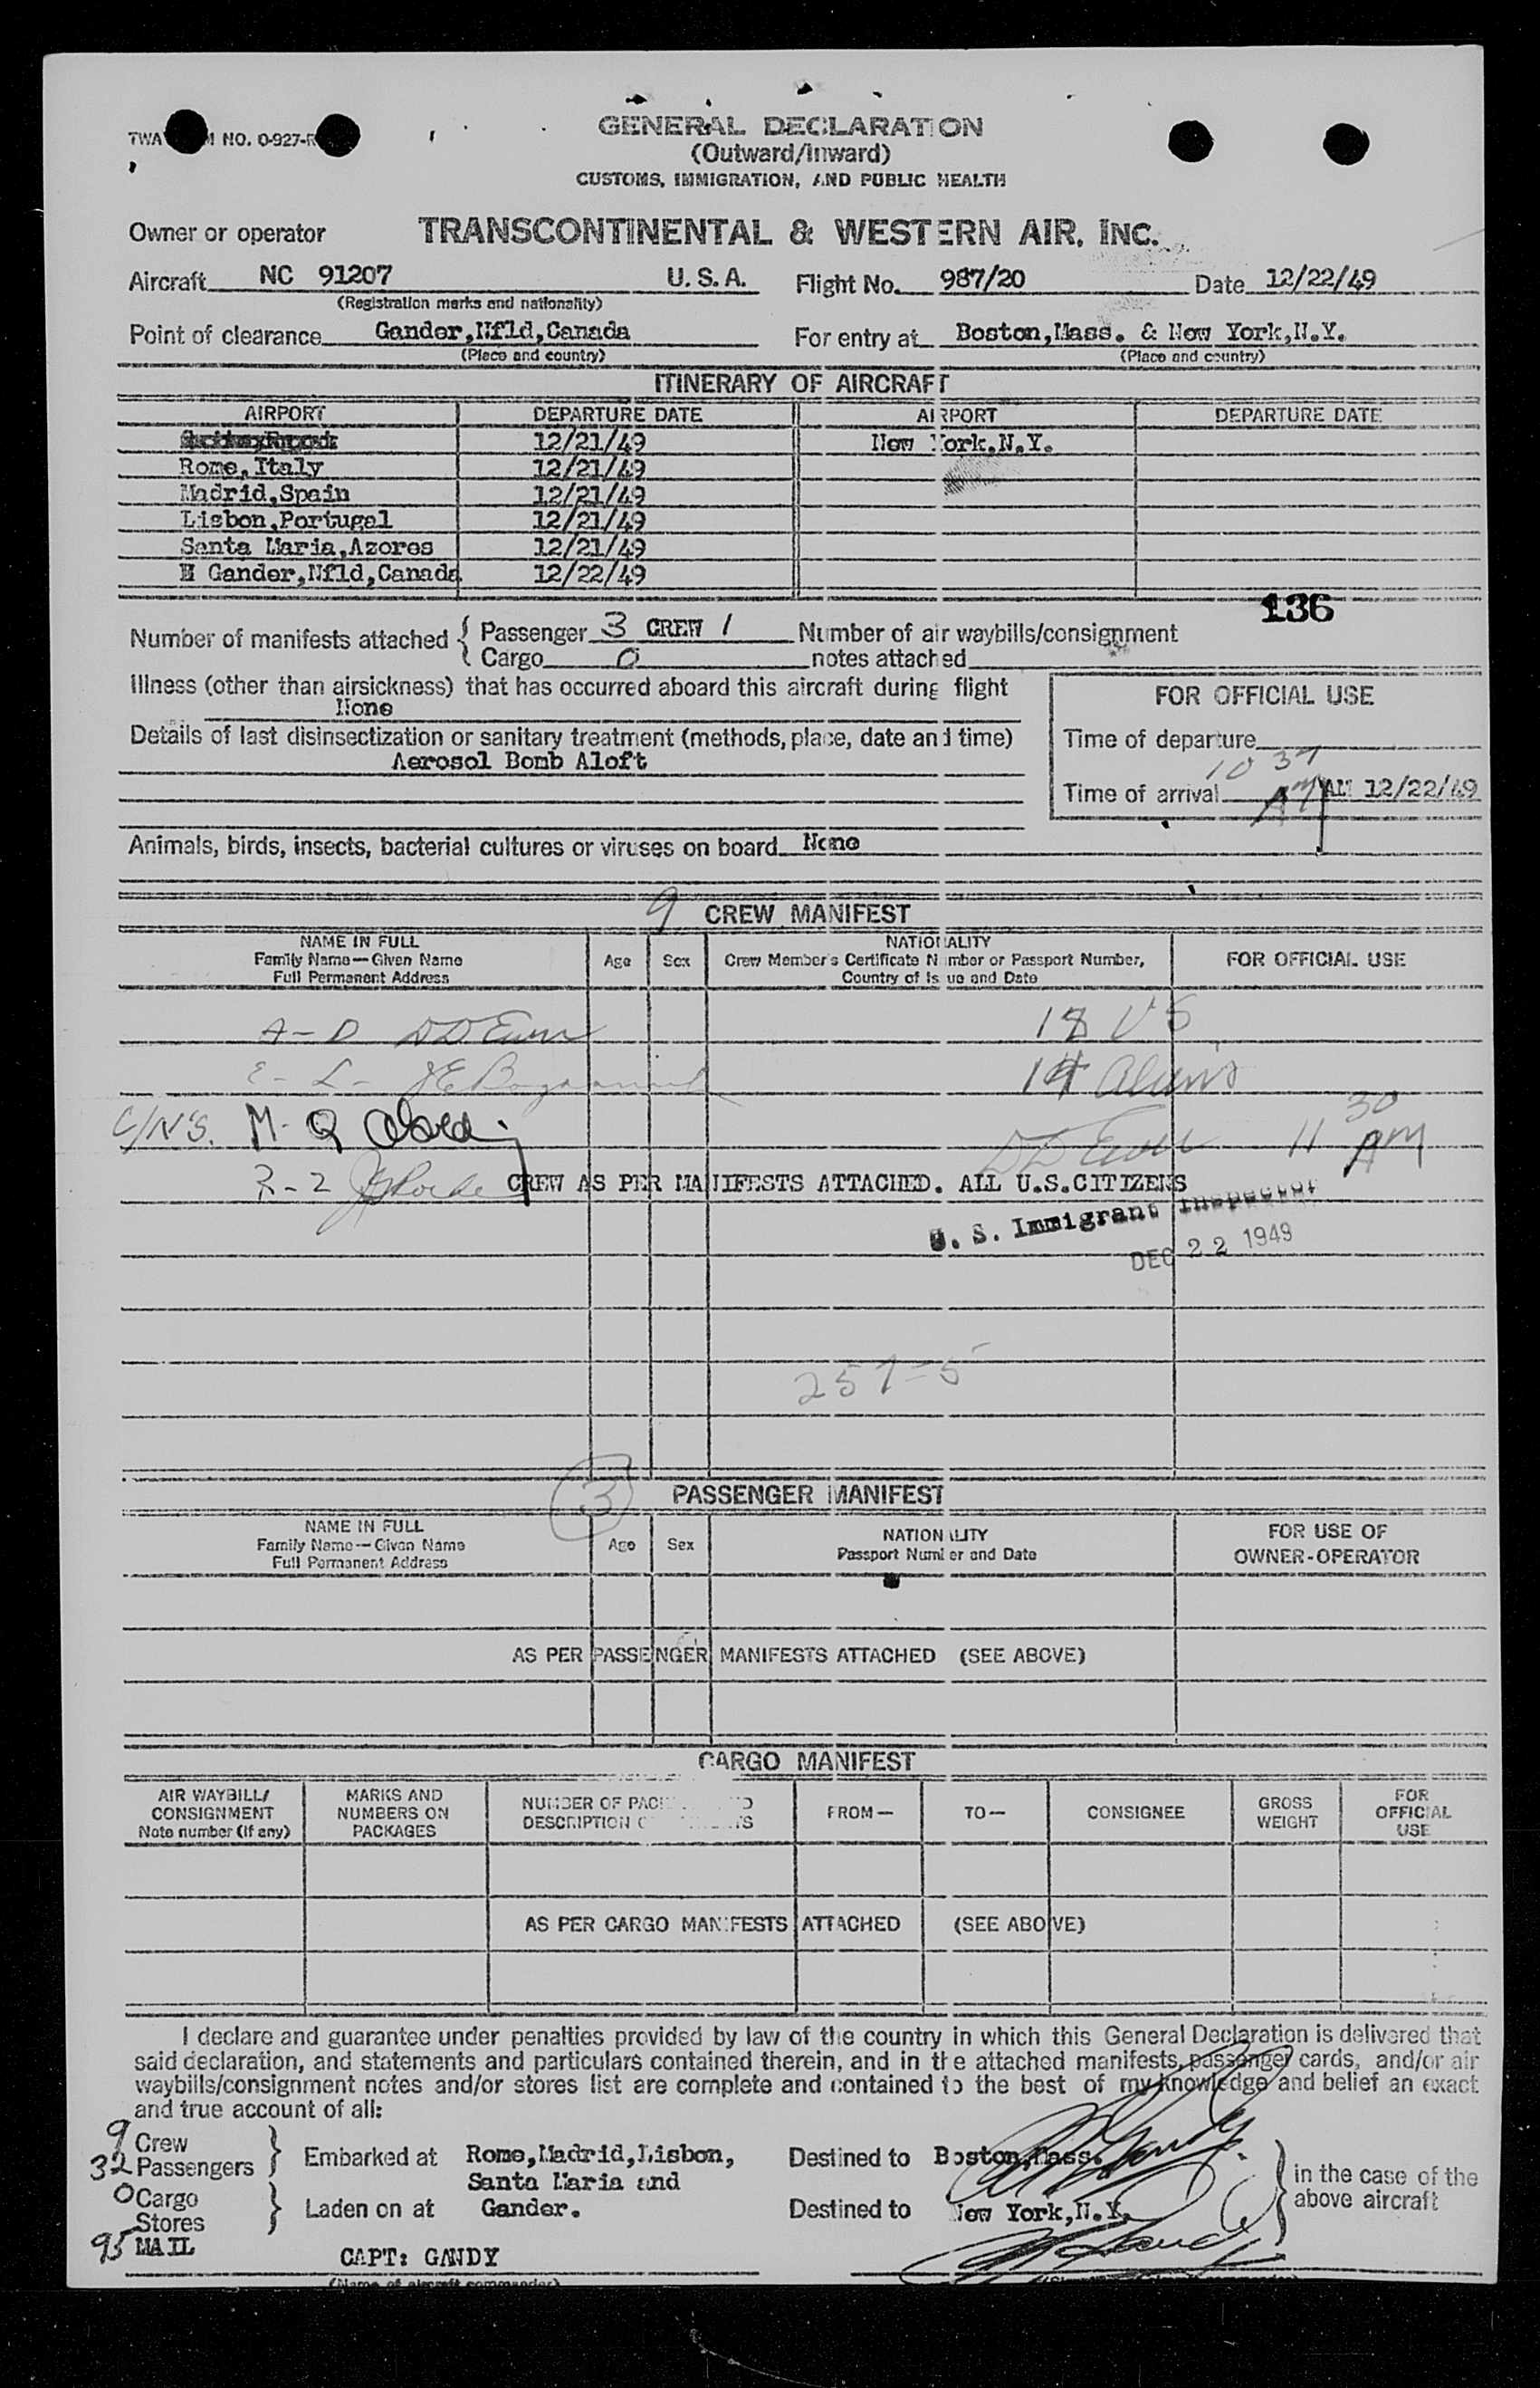 TWA NO. O-927-R
GENERAL DECLARATION
(Outward/Inward)
CUSTOMS, IMMIGRATION, AND PUBLIC HEALTH
Owner or operator TRANSCONTINENTAL & WESTERN AIR, INC.
Aircraft NC 91207 U.S.A. Flight No. 987/20 Date 12/22/49
(Registration marks and nationality)
Point of clearance Gander,Nfld,Canada For entry at Boston,Mass. & New York,N.Y.
(Place and country) (Place and country)
ITINERARY OF AIRCRAFT
AIRPORT DEPARTURE DATE AIRPORT DEPARTURE DATE
12/21/49 New York,N.Y.
Rome,Italy 12/21/49
Madrid,Spain 12/21/49
Lisbon,Portugal 12/21/49
Santa Maria,Azores 12/21/49
Gander,Nfld,Canada 12/22/49
136
Number of manifests attached { Passenger 3 CREW 1 Number of air waybills/consignment
{ Cargo 0 notes attached
Illness (other than airsickness) that has occurred aboard this aircraft during flight
None
FOR OFFICIAL USE
Details of last disinsectization or sanitary treatment (methods, place, date and time)
Aerosol Bomb Aloft
Time of departure
10 37
Time of arrival AM AM 12/22/49
Animals, birds, insects, bacterial cultures or viruses on board None
9 CREW MANIFEST
NAME IN FULL
Family Name—Given Name
Full Permanent Address
Age Sex
NATIONALITY
Crew Member's Certificate Number or Passport Number,
Country of Issue and Date
FOR OFFICIAL USE
A-D 18 US
E-L- 14 Aliens
C/N'S. M-Q 11 30 AM
R-Z CREW AS PER MANIFESTS ATTACHED. ALL U.S.CITIZENS
U. S. Immigrant Inspector
DEC 22 1949
257-5
3 PASSENGER MANIFEST
NAME IN FULL
Family Name—Given Name
Full Permanent Address
Age Sex
NATIONALITY
Passport Number and Date
FOR USE OF
OWNER-OPERATOR
AS PER PASSENGER MANIFESTS ATTACHED (SEE ABOVE)
CARGO MANIFEST
AIR WAYBILL/
CONSIGNMENT
Note number (if any)
MARKS AND
NUMBERS ON
PACKAGES
NUMBER OF
DESCRIPTION
FROM—
TO—
CONSIGNEE
GROSS
WEIGHT
FOR
OFFICIAL
USE
AS PER CARGO MANIFESTS ATTACHED (SEE ABOVE)
I declare and guarantee under penalties provided by law of the country in which this General Declaration is delivered that
said declaration, and statements and particulars contained therein, and in the attached manifests, passenger cards, and/or air
waybills/consignment notes and/or stores list are complete and contained to the best of my knowledge and belief an exact
and true account of all:
9 Crew
32 Passengers } Embarked at Rome,Madrid,Lisbon, Destined to Boston,Mass.
Santa Maria and
0 Cargo
Stores } Laden on at Gander. Destined to New York,N.Y. } in the case of the
above aircraft
95 MAIL
CAPT: GANDY
(Name of aircraft commander)